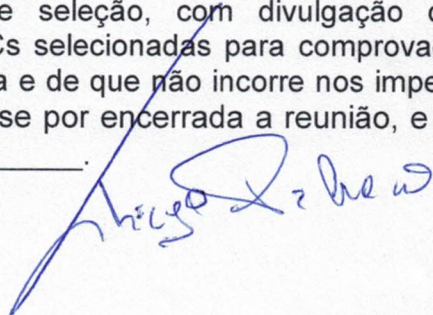 e seleção, com divulgação
Cs selecionadas para comprova
a e de que não incorre nos impe
se por encerrada a reunião, e
.